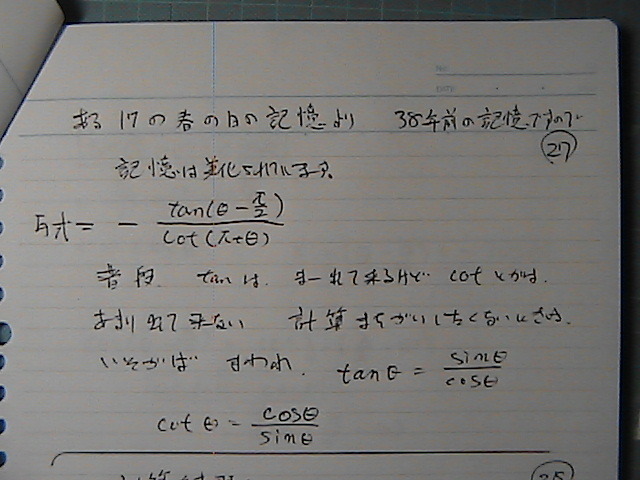 ある17の春の日の記憶より 38年前の記憶ですので
27
記憶は美化されています。
与式 = - tan(θ - π/2) / cot(π+θ)
普段 tanは、まーれて来るけど cotとかは、
あまり出て来ない 計算まちがいしたくないときは、
いそがば まわれ. tanθ = sinθ/cosθ
cotθ = cosθ/sinθ